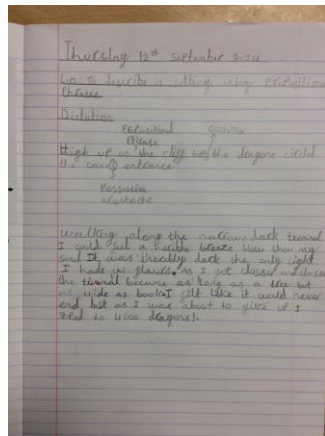 Thursday 12th September 2024
L.O: To describe a setting using prepositional
Phrases
Dictation
Prepositional Comma
Phrase
High up on the cliff the dragons circled
the cave's entrance.
Possessive
apostrophe
walking along the narrow dark tunnel
I could feel a horible breeze blow thow my
soul It was threally dark the only light
I had was As I got closser and closser
the tunnal became as long as a tree but
as wide as book. I felt like it would never
end but as I was about to give up I
to dragons!